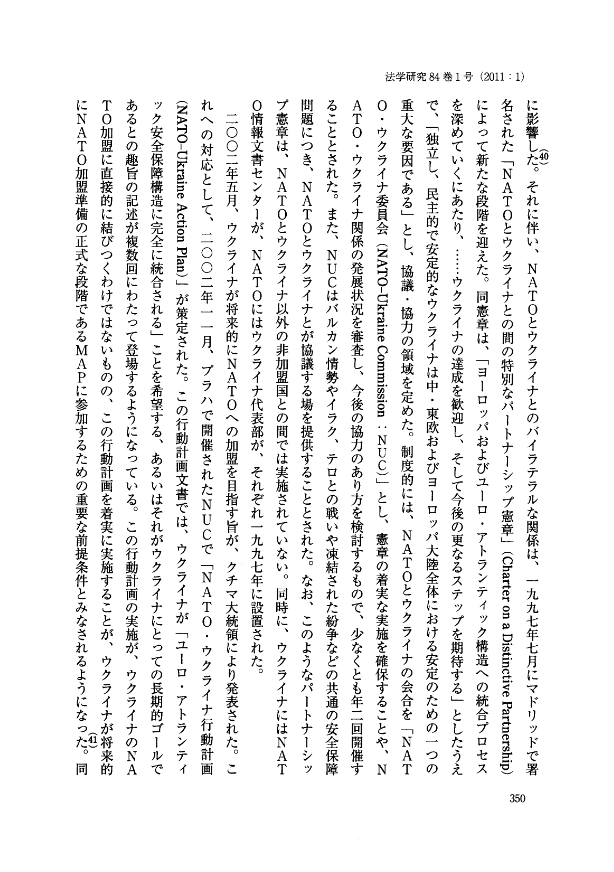 法学研究 84 巻 1 号（2011：1）
に影響した。(40)それに伴い、NATOとウクライナとのバイラテラルな関係は、一九九七年七月にマドリッドで署
名された「NATOとウクライナとの間の特別なパートナーシップ憲章」(Charter on a Distinctive Partnership)
によって新たな段階を迎えた。同憲章は、「ヨーロッパおよびユーロ・アトランティック構造への統合プロセス
を深めていくにあたり、……ウクライナの達成を歓迎し、そして今後の更なるステップを期待する」としたうえ
で、「独立し、民主的で安定的なウクライナは中・東欧およびヨーロッパ大陸全体における安定のための一つの
重大な要因である」とし、協議・協力の領域を定めた。制度的には、NATOとウクライナの会合を「NAT
O・ウクライナ委員会 (NATO-Ukraine Commission：NUC)」とし、憲章の着実な実施を確保することや、N
ATO・ウクライナ関係の発展状況を審査し、今後の協力のあり方を検討するもので、少なくとも年二回開催す
ることとされた。また、NUCはバルカン情勢やイラク、テロとの戦いや凍結された紛争などの共通の安全保障
問題につき、NATOとウクライナとが協議する場を提供することとされた。なお、このようなパートナーシッ
プ憲章は、NATOとウクライナ以外の非加盟国との間では実施されていない。同時に、ウクライナにはNAT
O情報文書センターが、NATOにはウクライナ代表部が、それぞれ一九九七年に設置された。
二〇〇二年五月、ウクライナが将来的にNATOへの加盟を目指す旨が、クチマ大統領により発表された。こ
れへの対応として、二〇〇二年一一月、プラハで開催されたNUCで「NATO・ウクライナ行動計画
(NATO-Ukraine Action Plan)」が策定された。この行動計画文書では、ウクライナが「ユーロ・アトランティ
ック安全保障構造に完全に統合される」ことを希望する、あるいはそれがウクライナにとっての長期的ゴールで
あるとの趣旨の記述が複数回にわたって登場するようになっている。この行動計画の実施が、ウクライナのNA
TO加盟に直接的に結びつくわけではないものの、この行動計画を着実に実施することが、ウクライナが将来的
にNATO加盟準備の正式な段階であるMAPに参加するための重要な前提条件とみなされるようになった。(41)同
350